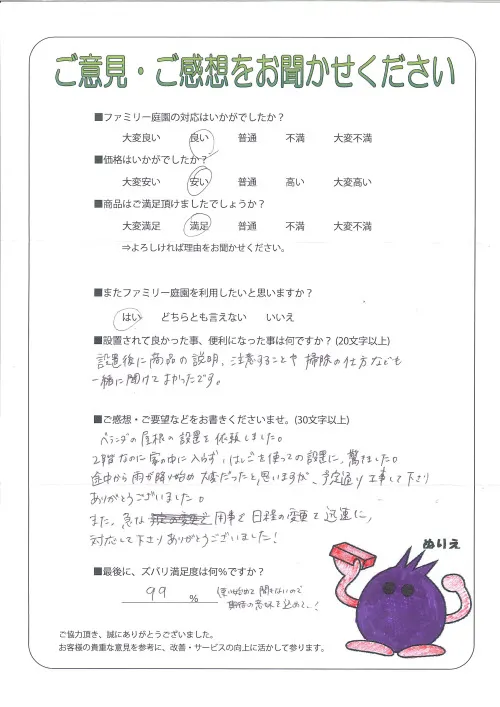 ご意見・ご感想をお聞かせください
■ファミリー庭園の対応はいかがでしたか?
大変良い 良い 普通 不満 大変不満
■価格はいかがでしたか?
大変安い 安い 普通 高い 大変高い
■商品はご満足頂けましたでしょうか?
大変満足 満足 普通 不満 大変不満
⇒よろしければ理由をお聞かせください。
■またファミリー庭園を利用したいと思いますか?
はい どちらとも言えない いいえ
■設置されて良かった事、便利になった事は何ですか? (20文字以上)
設置後に商品の説明、注意することや掃除の仕方なども
一緒に聞けてよかったです。
■ご感想・ご要望などをお書きくださいませ。(30文字以上)
ベランダの屋根の設置を依頼しました。
2階なのに家の中に入らず、はしごを使っての設置に、驚きました。
途中から雨が降り始め大変だったと思いますが、予定通り工事して下さり
ありがとうございました。
また、急な用事で日程の変更も迅速に、
対応して下さりありがとうございました!
ぬりえ
■最後に、ズバリ満足度は何%ですか?
99 %
ご協力頂き、誠にありがとうございました。
お客様の貴重な意見を参考に、改善・サービスの向上に活かして参ります。